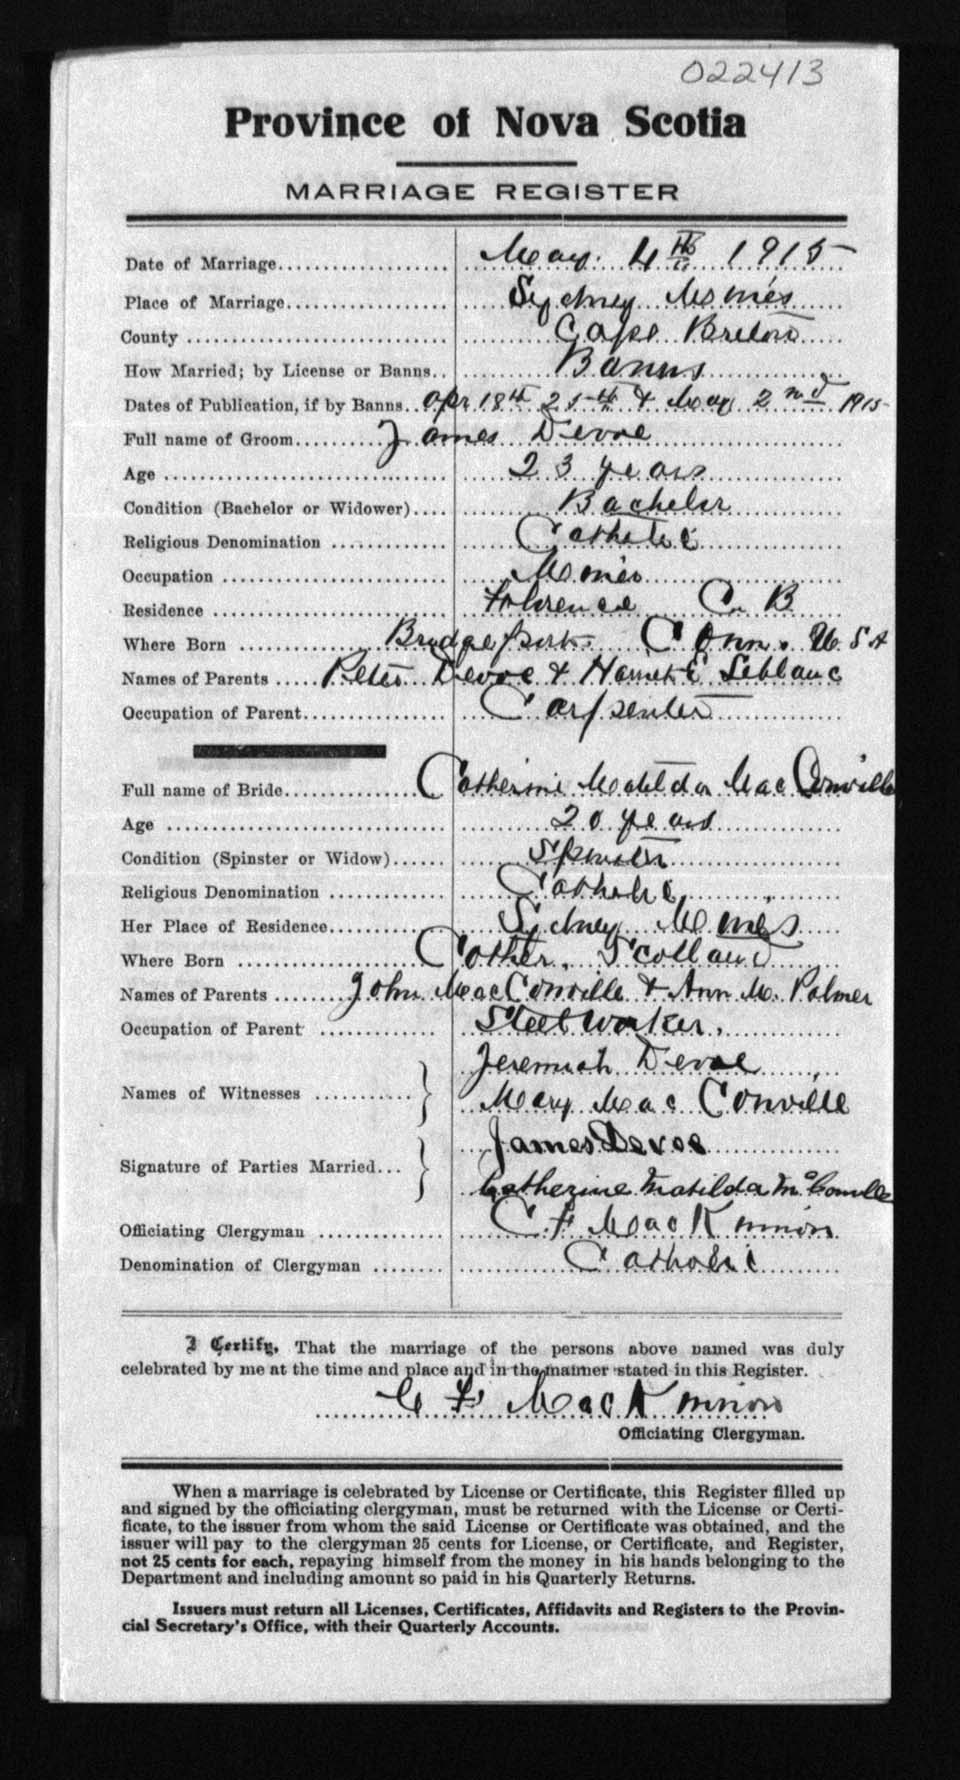 022413
Province of Nova Scotia
MARRIAGE REGISTER
Date of Marriage May. 4th 1915
Place of Marriage Sydney Mines
County Cape Breton
How Married; by License or Banns Banns
Dates of Publication, if by Banns Apr 18th 25th & May 2nd 1915
Full name of Groom James Devoe
Age 23 years
Condition (Bachelor or Widower) Bachelor
Religious Denomination Catholic
Occupation Miner
Residence Florence C. B
Where Born Bridgeport. Conn. U S A
Names of Parents Peter Devoe & Harriet E Leblanc
Occupation of Parent Carpenter
Full name of Bride Catherine Matilda Mac Conville
Age 20 years
Condition (Spinster or Widow) Spinster
Religious Denomination Catholic
Her Place of Residence Sydney Mines
Where Born Scotland
Names of Parents John MacConville & Ann M. Palmer
Occupation of Parent Steel Worker.
Names of Witnesses Jeremiah Devoe
Mary Mac Conville
Signature of Parties Married James Devoe
Catherine Matilda McConville
Officiating Clergyman C F MacKinnon
Denomination of Clergyman Catholic
I Certify, That the marriage of the persons above named was duly
celebrated by me at the time and place and in the manner stated in this Register.
C F MacKinnon
Officiating Clergyman.
When a marriage is celebrated by License or Certificate, this Register filled up
and signed by the officiating clergyman, must be returned with the License or Certi-
ficate, to the issuer from whom the said License or Certificate was obtained, and the
issuer will pay to the clergyman 25 cents for License, or Certificate, and Register,
not 25 cents for each, repaying himself from the money in his hands belonging to the
Department and including amount so paid in his Quarterly Returns.
Issuers must return all Licenses, Certificates, Affidavits and Registers to the Provin-
cial Secretary's Office, with their Quarterly Accounts.